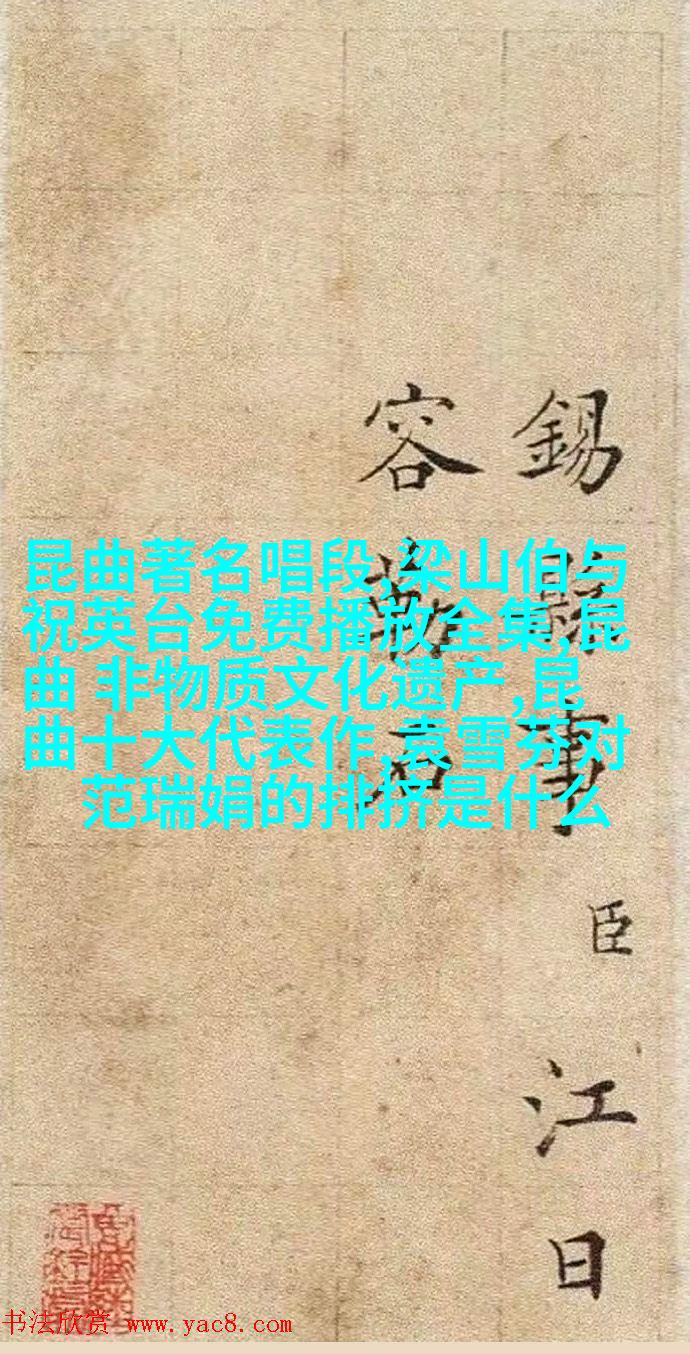 錫縣事臣江日
容勒石
昆曲著名唱段,梁山伯与
祝英台免费播放全集,昆
曲 非物质文化遗产,昆
曲十大代表作,袁雪芬对
范瑞娟的排挤是什么
书法欣赏 www.yac8.com